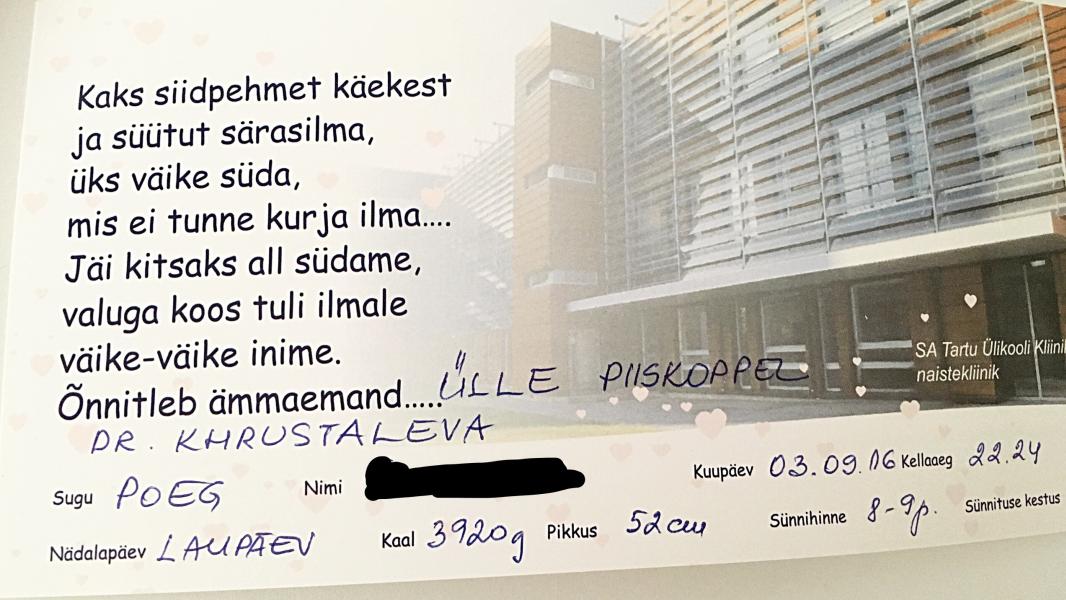 Kaks siidpehmet käekest
ja süütut särasilma,
üks väike süda,
mis ei tunne kurja ilma....
Jäi kitsaks all südame,
valuga koos tuli ilmale
väike-väike inime.
Õnnitleb ämmaemand.....ÜLLE PIISKOPPEL
DR. KHRUSTALEVA
SA Tartu Ülikooli Kliini
naistekliinik
Sugu POEG Nimi Kuupäev 03.09.16 Kellaaeg 22.24
Nädalapäev LAUPÄEV Kaal 3920g Pikkus 52cm Sünnihinne 8-9p. Sünnituse kestus